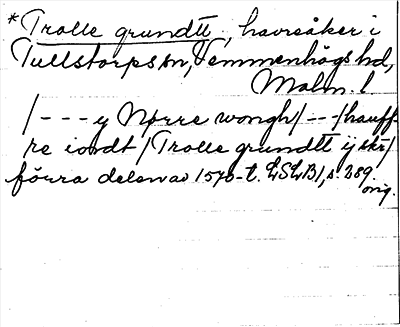 *Trolle grundtt, havreåker i
Tullstorps sn, Vemmenhögs hd,
Malm. l
/ - - - y Nørre wongh / - - - / hauff-
re iordt / Trolle grundtt ij skr /
förra delen av 1570-t. LSLB1, s. 389.
orig.